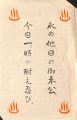 永の他日の御奉公
今日一時の耐え忍び、